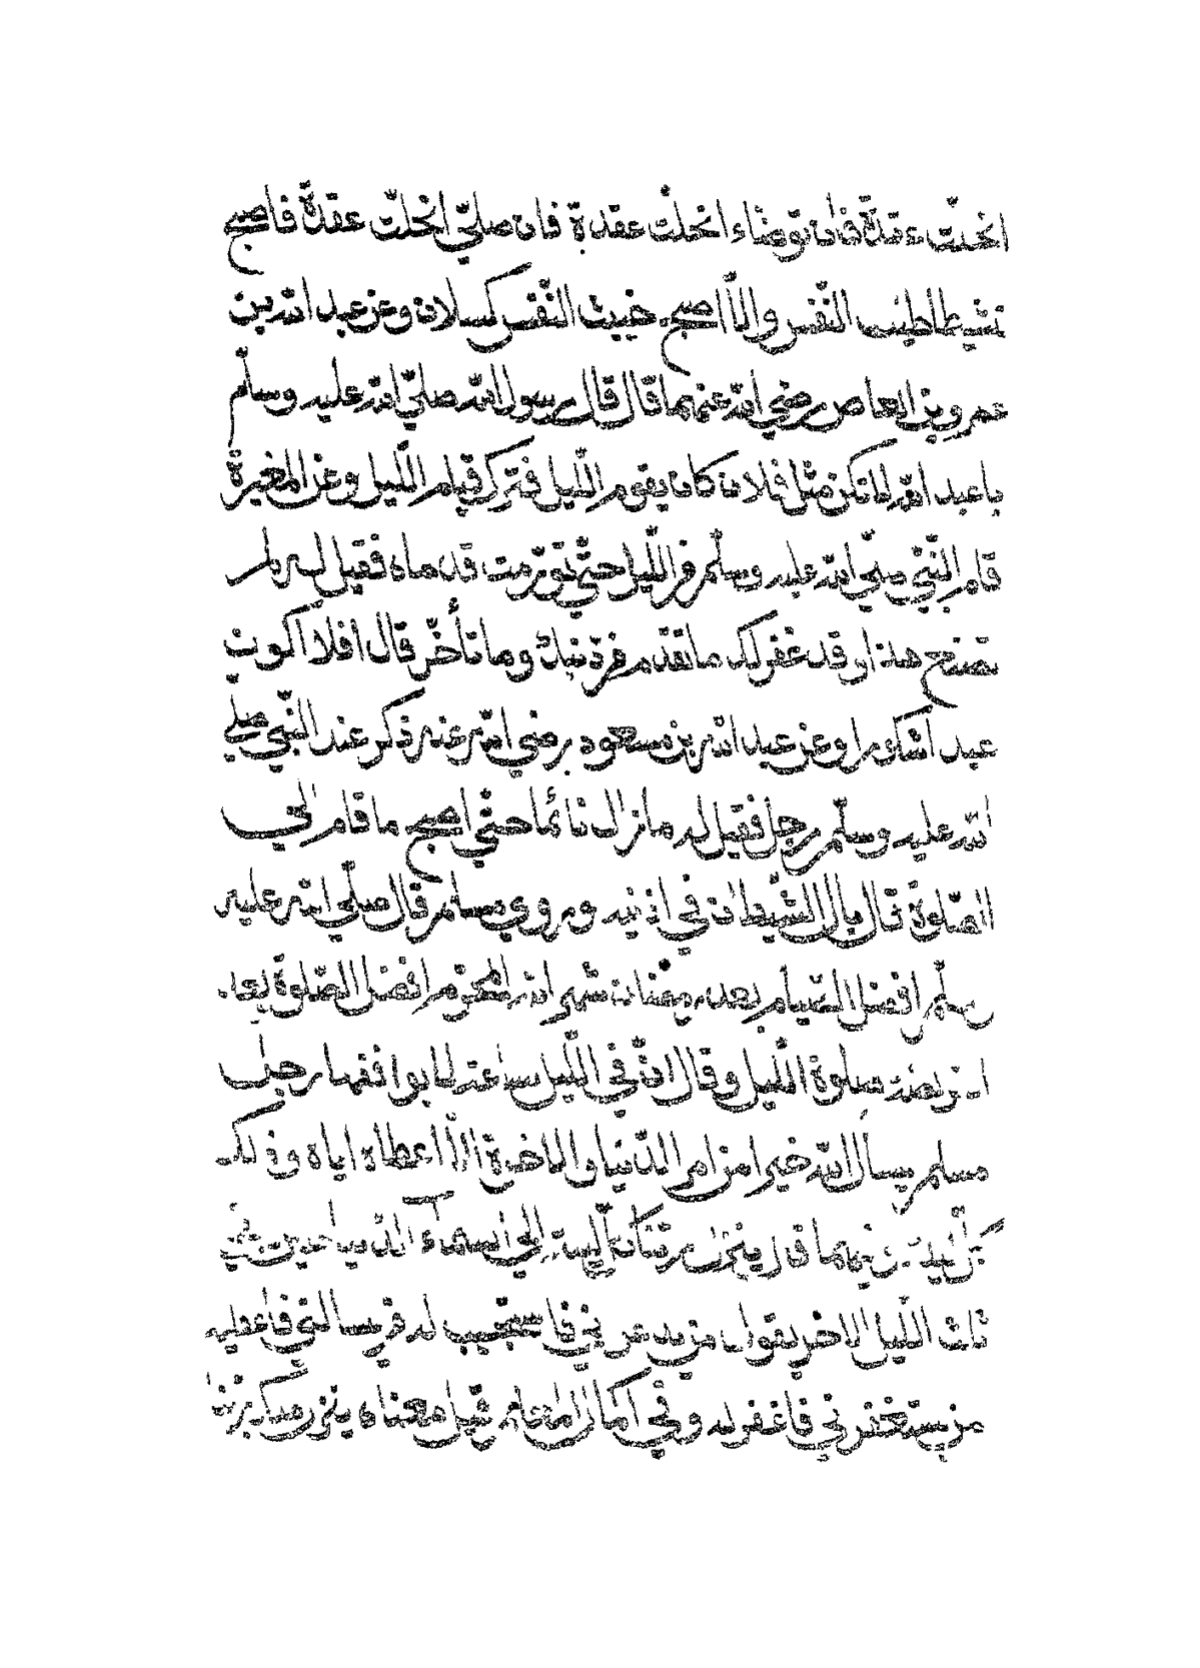 انحلّت عقدة فان توضاء انحلّت عقدة فان صلّي انحلّت عقدة فاصبح
نشيطا طيب النّفس والّا اصبح خبيث النّفس كسلان وعن عبد الله بن
عمرو بن العاص رضي الله عنهما قال قال رسول الله صلّي الله عليه وسلّم
يا عبد الله لا تكن مثل فلان كان يقوم اللّيل فترك قيام اللّيل وعن المغيرة
قام النّبيّ صلّي الله عليه وسلّم من اللّيل حتّي تورّمت قدماه فقيل له لم
تصنع هذا وقد غفر لك ما تقدّم من ذنبك وما تأخّر قال افلا اكون
عبدا شكورا وعن عبد الله بن مسعود رضي الله عنه ذكر عند النّبي صلّي
الله عليه وسلّم رجل فقيل له ما زال نائما حتّي اصبح ما قام الي
الصّلوة قال بال الشّيطان في اذنيه وروي مسلم قال صلّي الله عليه
وسلّم افضل الصّيام بعد رمضان شهر الله المحرّم وافضل الصّلوة بعد
صلوة اللّيل وقال انّ في اللّيل ساعة لا يوافقها رجل
مسلم يسأل الله خيرا من امر الدّنيا والاخرة الّا اعطاه ايّاه وذلك
كلّ ليلة قال ينزل ربّنا كلّ ليلة الي السّماء الدّنيا حين يبقي
ثلث اللّيل الاخر يقول من يدعوني فاستجيب له من يسالني فاعطيه
من يستغفرني فاغفر له وفي اكمال المعلم قيل معناه ينزل ملك ربّنا